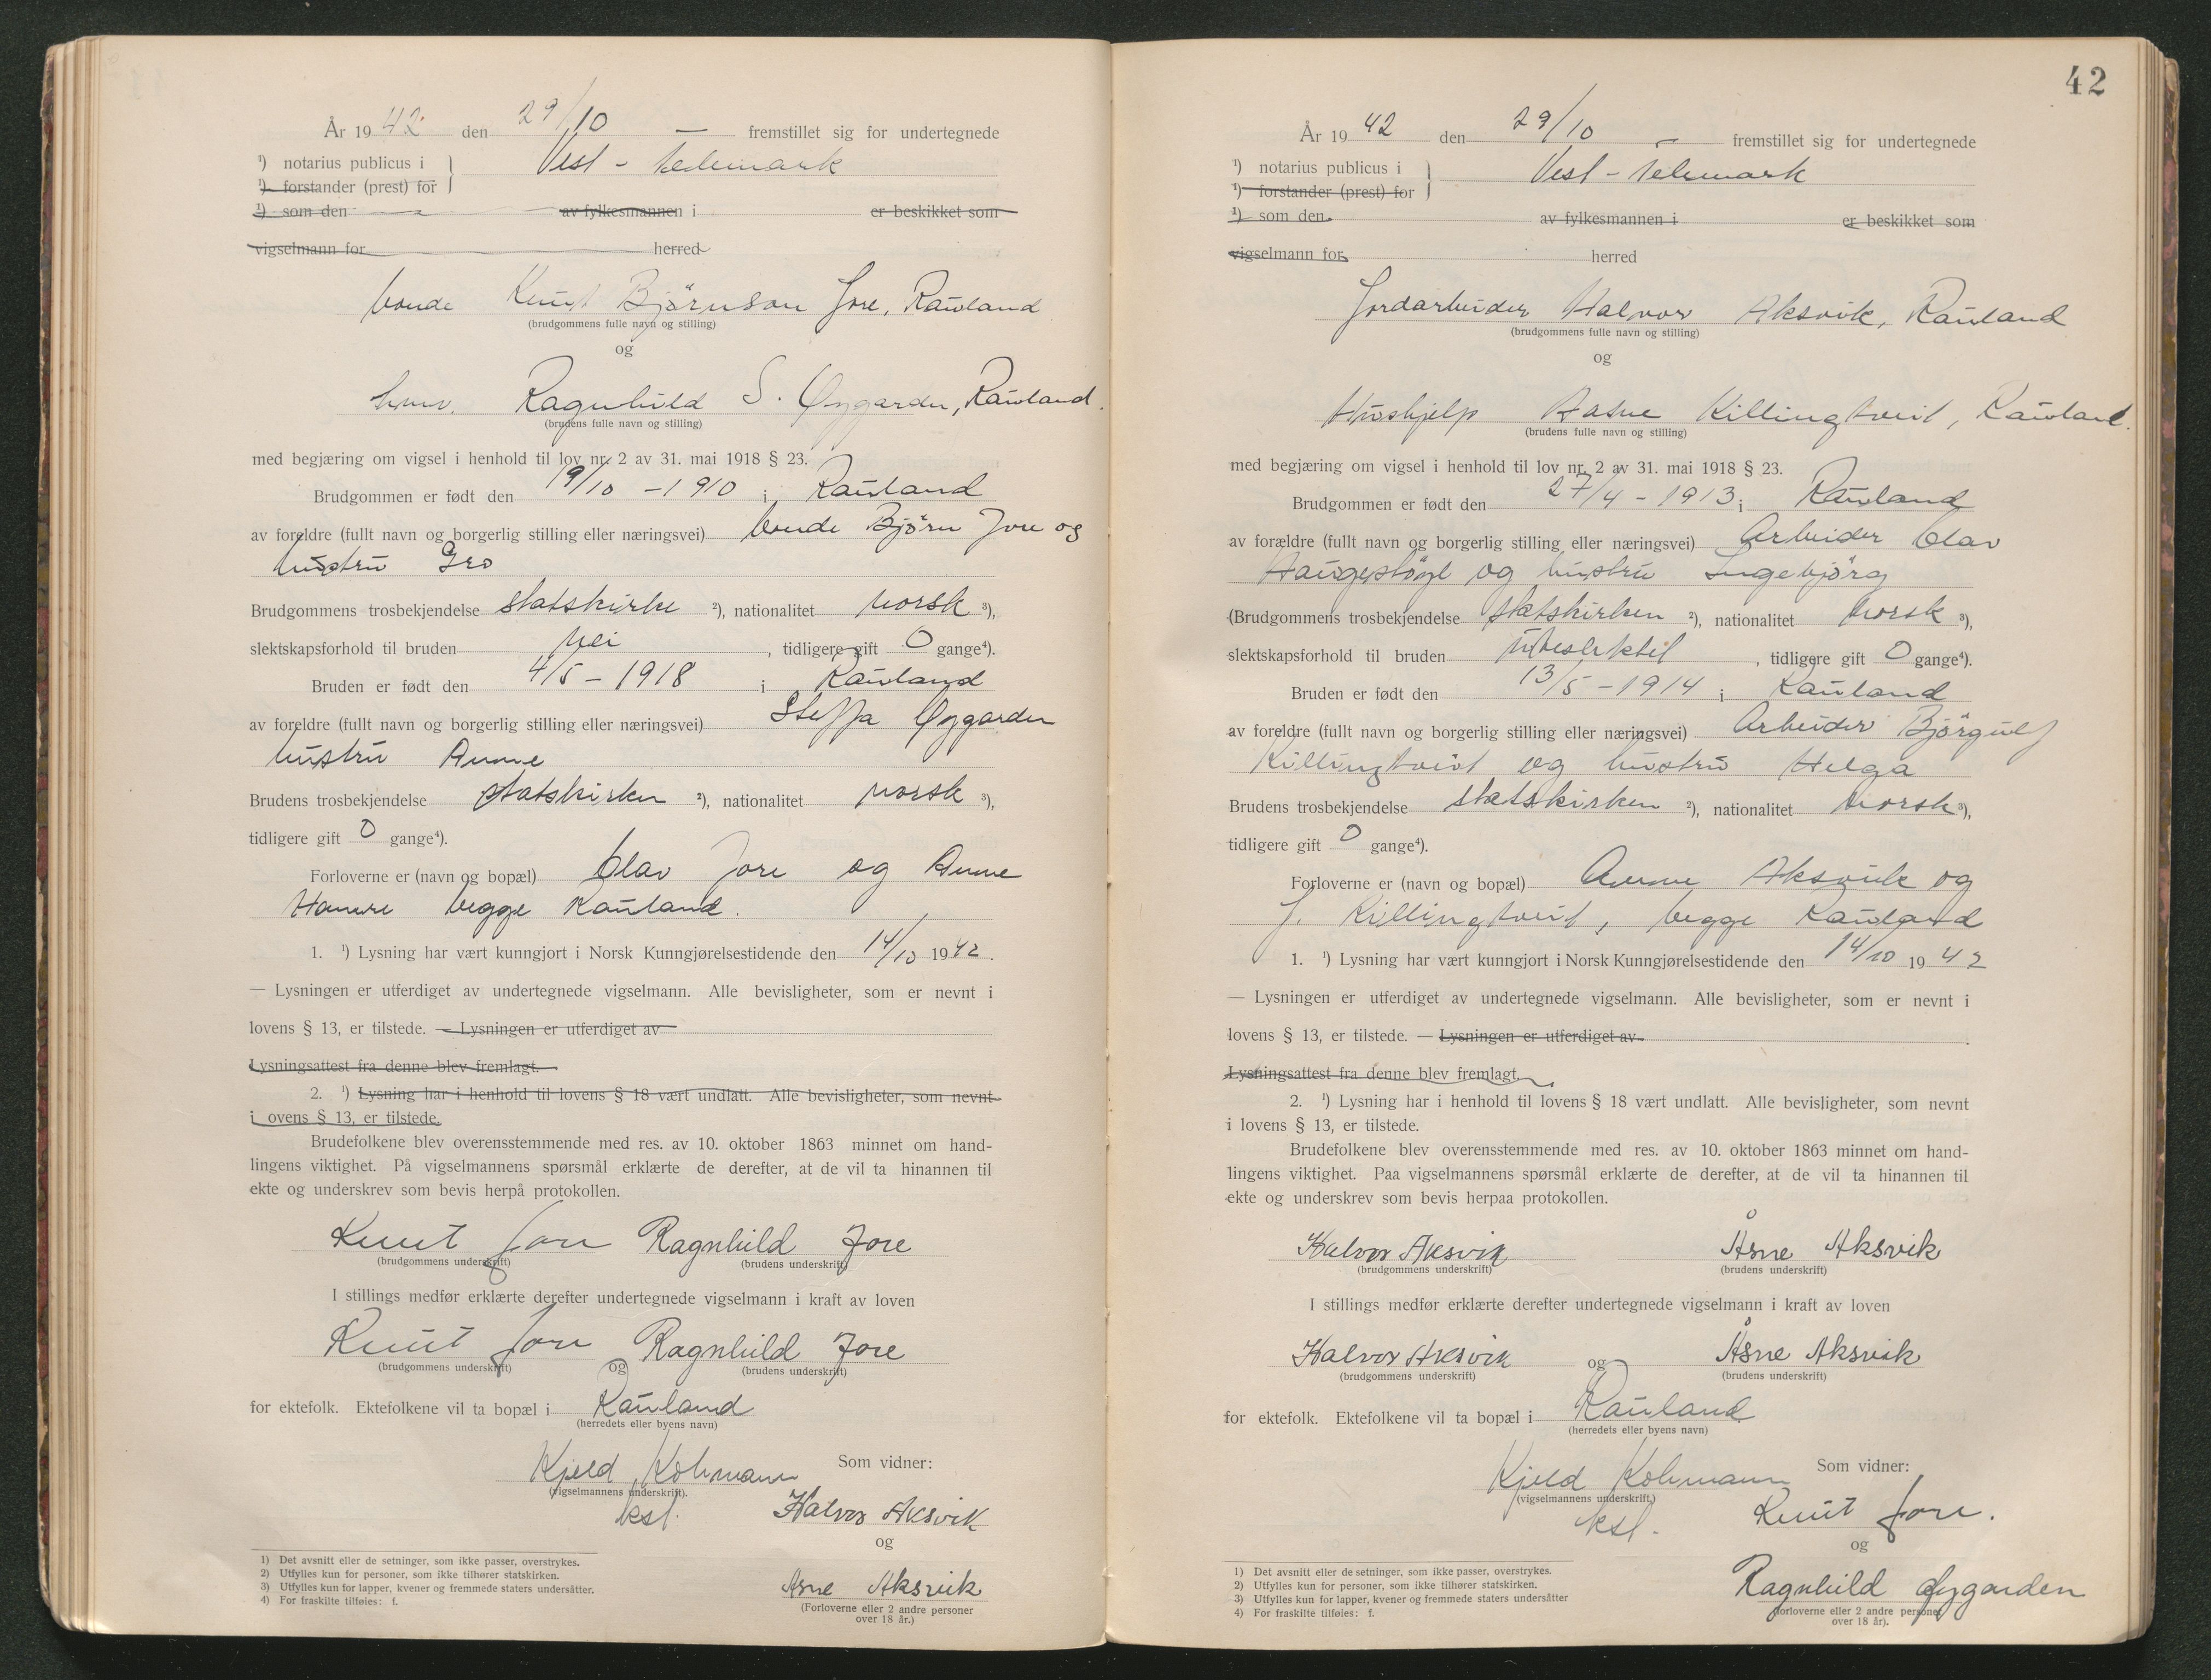 År 1942 den 29/10 — fremstillet sig for undertegnede
¹) notarius publicus i Vest-Telemark
¹) forstander (prest) for
¹) som den av fylkesmannen i er beskikket som
vigselmann for herred
bonde Knut Björnson Jore, Rauland
(brudgommens fulle navn og stilling)
og
Ragnhild S. Øygarden, Rauland.
(brudens fulle navn og stilling)
med begjæring om vigsel i henhold til lov nr. 2 av 31. mai 1918 § 23.
Brudgommen er født den 19/10 - 1910 i Rauland
av foreldre (fullt navn og borgerlig stilling eller næringsvei) bonde Björn Jore og
hustru Gro
Brudgommens trosbekjendelse statskirke ²), nationalitet norsk ³),
slektskapsforhold til bruden nei , tidligere gift 0 gange⁴).
Bruden er født den 4/5 - 1918 i Rauland
av foreldre (fullt navn og borgerlig stilling eller næringsvei) Steffa Øygarden
hustru Anne
Brudens trosbekjendelse statskirken ²), nationalitet norsk ³),
tidligere gift 0 gange⁴).
Forloverne er (navn og bopæl) Olav Jore og Anne
Hamre begge Rauland.
1. ¹) Lysning har vært kunngjort i Norsk Kunngjørelsestidende den 14/10 1942.
— Lysningen er utferdiget av undertegnede vigselmann. Alle bevisligheter, som er nevnt i
lovens § 13, er tilstede. — Lysningen er utferdiget av
Lysningsattest fra denne blev fremlagt.
2. ¹) Lysning har i henhold til lovens § 18 vært undlatt. Alle bevisligheter, som nevnt
i ovens § 13, er tilstede.
Brudefolkene blev overensstemmende med res. av 10. oktober 1863 minnet om hand-
lingens viktighet. På vigselmannens spørsmål erklærte de derefter, at de vil ta hinannen til
ekte og underskrev som bevis herpå protokollen.
Knut Jore Ragnhild Jore
(brudgommens underskrift) (brudens underskrift)
I stillings medfør erklærte derefter undertegnede vigselmann i kraft av loven
Knut Jore og Ragnhild Jore
(brudgommens underskrift) (brudens underskrift)
for ektefolk. Ektefolkene vil ta bopæl i Rauland
(herredets eller byens navn)
Kjeld Kohmann Som vidner:
(vigselmannens underskrift).
kst. Halvor Aksvik
og
Åsne Aksvik
(Forloverne eller 2 andre personer
over 18 år.)
1) Det avsnitt eller de setninger, som ikke passer, overstrykes.
2) Utfylles kun for personer, som ikke tilhører statskirken.
3) Utfylles kun for lapper, kvener og fremmede staters undersåtter.
4) For fraskilte tilføies: f.
42
År 1942 den 29/10 — fremstillet sig for undertegnede
¹) notarius publicus i Vest-Telemark
¹) forstander (prest) for
¹) som den av fylkesmannen i er beskikket som
vigselmann for herred
Jordarbeider Halvor Aksvik, Rauland
(brudgommens fulle navn og stilling)
og
Hushjelp Aasne Killingtveit, Rauland.
(brudens fulle navn og stilling)
med begjæring om vigsel i henhold til lov nr. 2 av 31. mai 1918 § 23.
Brudgommen er født den 27/4 - 1913 i Rauland
av forældre (fullt navn og borgerlig stilling eller næringsvei) Arbeider Olav
Haugestöyl og hustru Ingebjörg
(Brudgommens trosbekjendelse statskirken ²), nationalitet norsk ³),
slektskapsforhold til bruden ubeslektet , tidligere gift 0 gange⁴).
Bruden er født den 13/5 - 1914 i Rauland
av foreldre (fullt navn og borgerlig stilling eller næringsvei) Arbeider Björgulf
Killingtveit og hustru Helga
Brudens trosbekjendelse statskirken ²), nationalitet norsk ³),
tidligere gift 0 gange⁴).
Forloverne er (navn og bopæl) Aksvik og
J. Killingtveit, begge Rauland
1. ¹) Lysning har vært kunngjort i Norsk Kunngjørelsestidende den 14/10 1942
— Lysningen er utferdiget av undertegnede vigselmann. Alle bevisligheter, som er nevnt i
lovens § 13, er tilstede. — Lysningen er utferdiget av
Lysningsattest fra denne blev fremlagt.
2. ¹) Lysning har i henhold til lovens § 18 vært undlatt. Alle bevisligheter, som nevnt
i lovens § 13, er tilstede.
Brudefolkene blev overensstemmende med res. av 10. oktober 1863 minnet om hand-
lingens viktighet. Paa vigselmannens spørsmål erklærte de derefter, at de vil ta hinannen til
ekte og underskrev som bevis herpaa protokollen.
Halvor Aksvik Åsne Aksvik
(brudgommens underskrift) (brudens underskrift)
I stillings medfør erklærte derefter undertegnede vigselmann i kraft av loven
Halvor Aksvik og Åsne Aksvik
(brudgommens underskrift) (brudens underskrift)
for ektefolk. Ektefolkene vil ta bopæl i Rauland
(herredets eller byens navn)
Kjeld Kohmann Som vidner:
(vigselmannens underskrift.)
kst. Knut Jore.
og
Ragnhild Øygarden
(forloverne eller 2 andre personer
over 18 år).
1) Det avsnitt eller de setninger, som ikke passer, overstrykes.
2) Utfylles kun for personer, som ikke tilhører statskirken.
3) Utfylles kun for lapper, kvener og fremmede staters undersåtter
4) For fraskilte tilføies: f.